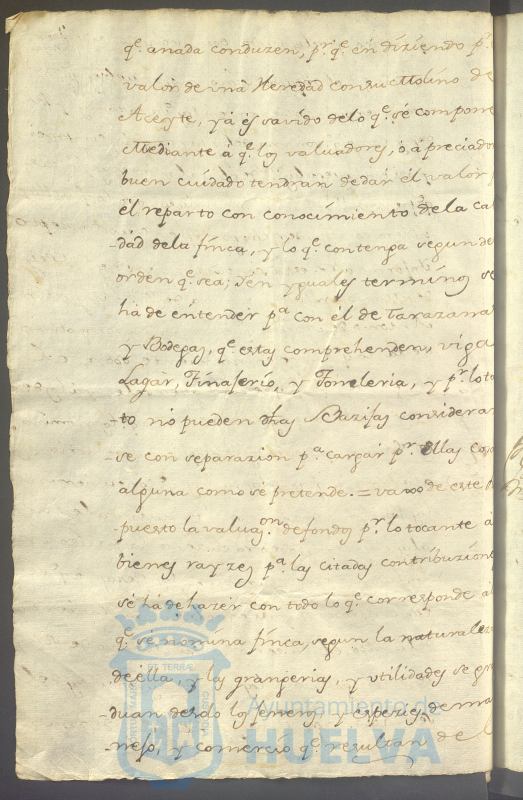 q.e anada conduzen, p.r q.e en diziendo p.r
valor de una Heredad con su Molino de
Aceyte, yá és savido de lo q.e sé compone
Mediante á q.e los valuadores, ó, á preciador
buen cuidado tendrán de dar él valor
él reparto con conocimiento de la cali
-dad dela finca, y lo q.e contenga segun del
orden q.e sea; y en yguales terminos se
há de entender p.a con él de tarazanas
y Bodegas, q.e estas comprehenden, viga
Lagar, Tinaserio, y Toneleria, y p.r lo ta
-to no pueden dhas Bazisas considerar
se con separazion p.a cargar p.r ellas cosa
alguna como sé pretende. = vaxo de este
puesto la valuaz.on de fondos p.r lo tocante á
bienes rayzes p.a las citadas contribuzione
sé há de hazer con todo lo q.e corresponde á
q.e se nomina finca, segun la naturaleza
de ella, y las granjerias, y utilidades se gra
-duan desde los generos, y especies de ma
-nejo, y comercio q.e resultan de
ET TERRAE
CUSTODIA
Ayuntamiento de
HUELVA